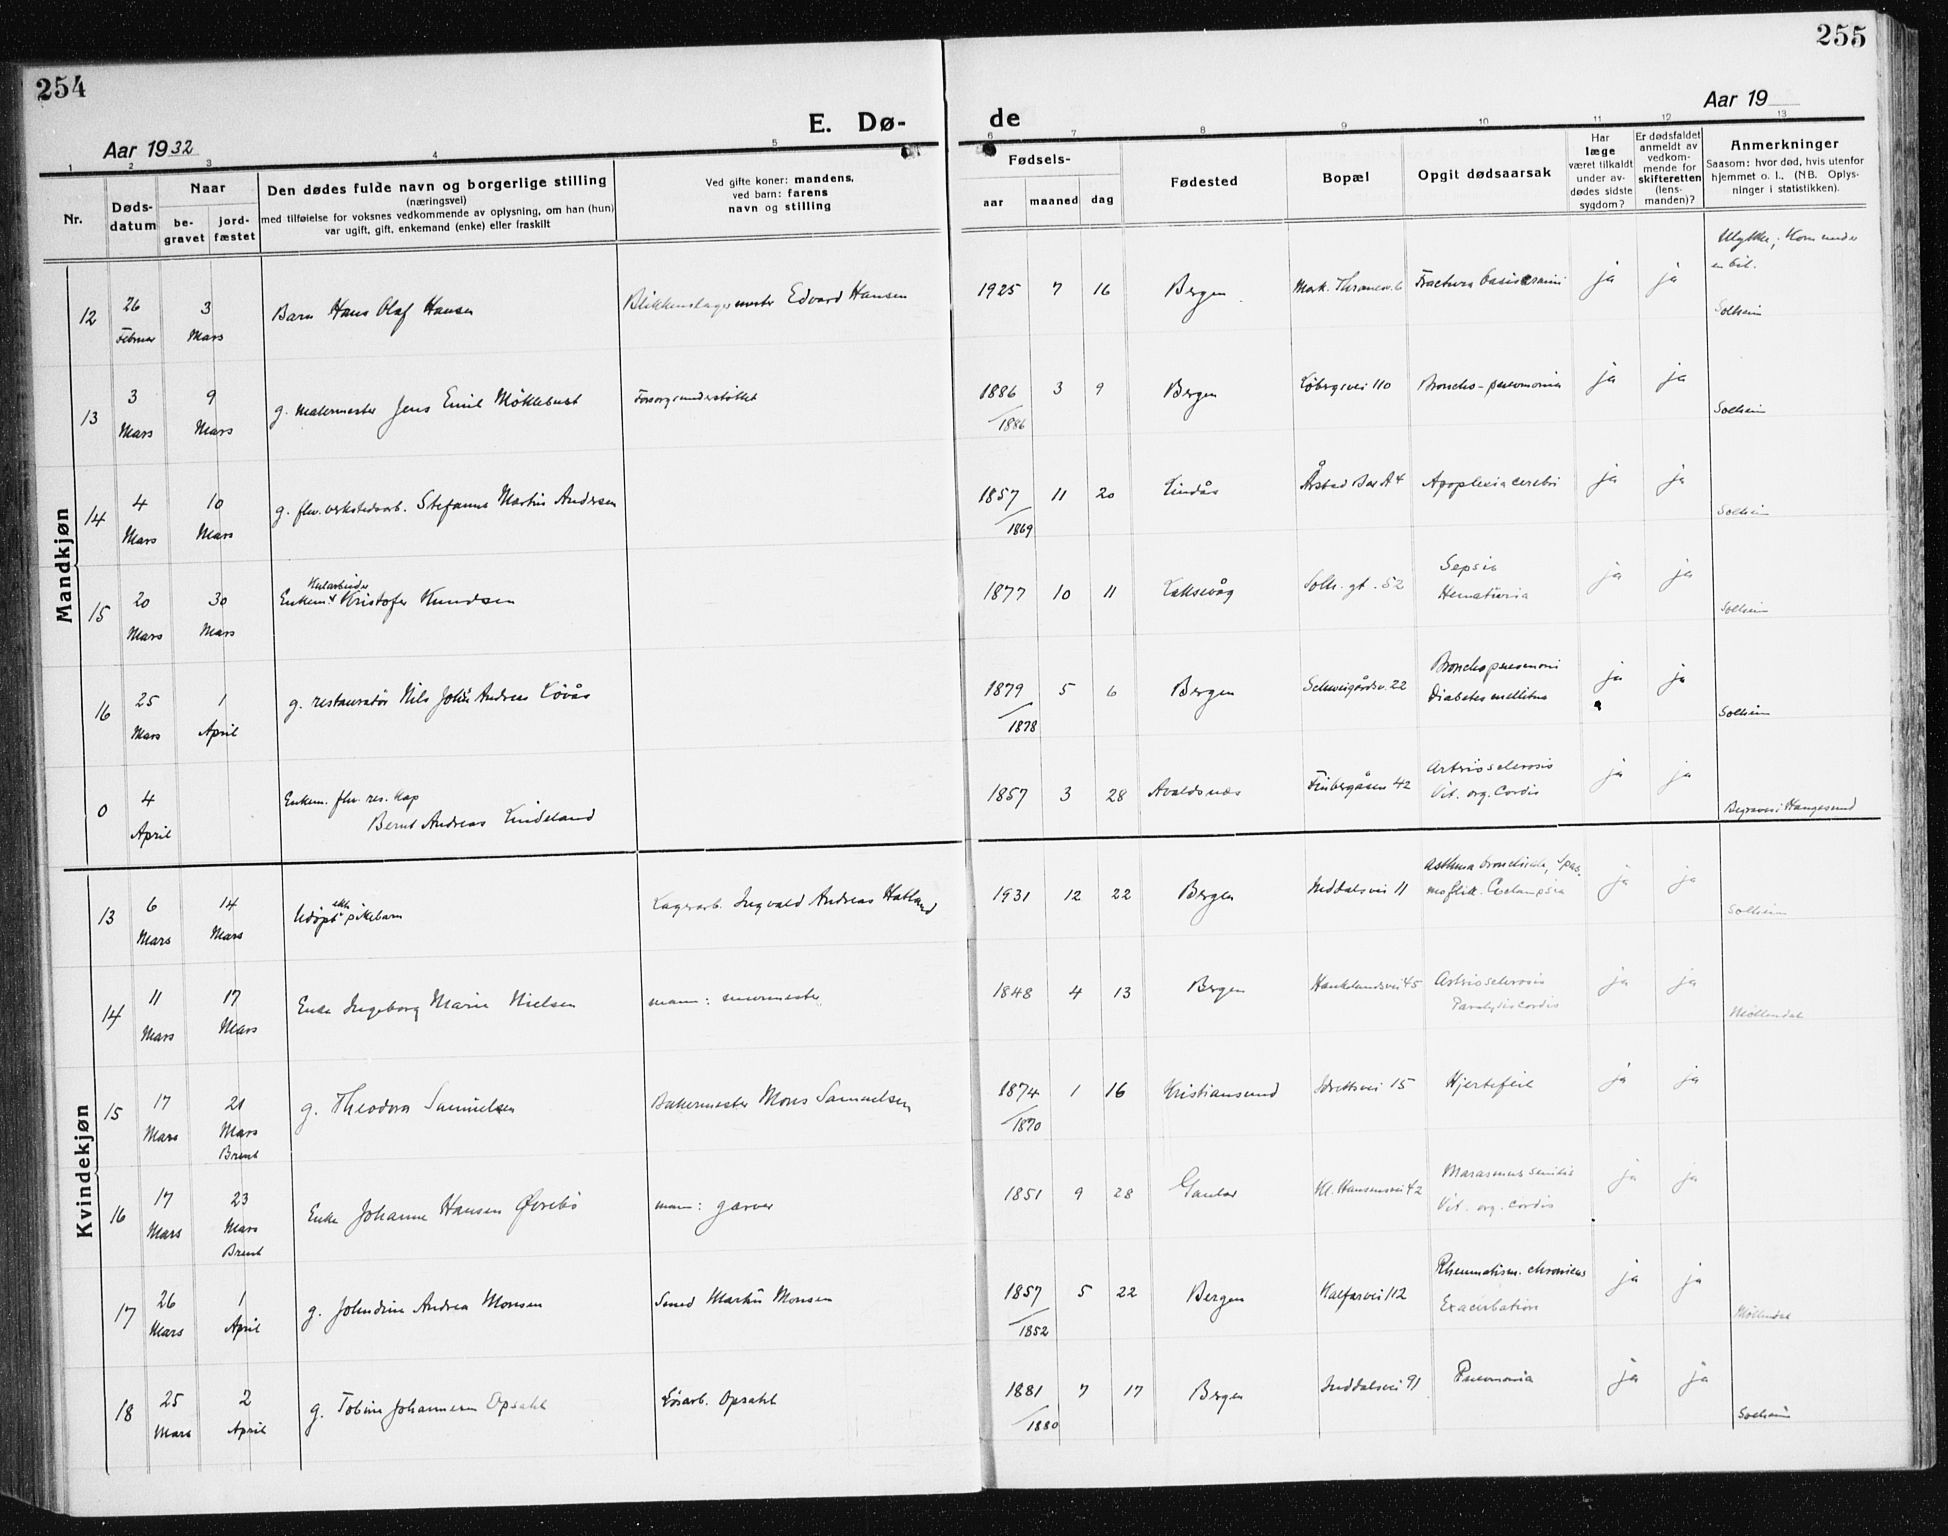 254
255
E. Dø-
de
Aar 1932
Aar 19
1 2 3 4 5
6 7 8 9 10 11 12 13
Nr.
Døds-
datum
Naar
be-
gravet
jord-
fæstet
Den dødes fulde navn og borgerlige stilling
(næringsvei)
med tilføielse for voksnes vedkommende av oplysning, om han (hun)
var ugift, gift, enkemand (enke) eller fraskilt
Ved gifte koner: mandens,
ved barn: farens
navn og stilling
Fødsels-
aar maaned dag
Fødested
Bopæl
Opgit dødsaarsak
Har
læge
været tilkaldt
under av-
dødes sidste
sygdom?
Er dødsfaldet
anmeldt av
vedkom-
mende for
skifteretten
(lens-
manden)?
Anmerkninger
Saasom: hvor død, hvis utenfor
hjemmet o. l.. (NB. Oplys-
ninger i statistikken).
Mandkjøn
12 26 Februar 3 Mars Barn Hans Olaf Hansen Blikkenslagermester Edvard Hansen 1925 7 16 Bergen Mark. Thranesv. 6 Fractura basis cranii ja ja Ulykke; Kom under
en bil.
Solheim
13 3 Mars 9 Mars g. malermester Jens Emil Møklebust Forsorgsunderstøttet 1886 3 9 Bergen Løbergsvei 110 Broncho-pneumonia ja ja Solheim
/1886
14 4 Mars 10 Mars g. fhv. verkstedsarb. Stefanus Martin Andersen 1857 11 20 Lindås Årstad Bar A 4 Apoplexia cerebri ja ja Solheim
/1869
Kularbeider
15 20 Mars 30 Mars Enkem. Kristofer Knudsen 1877 10 11 Laksevåg Solh. gt. 52 Sepsis
Hematuria ja ja Solheim
16 25 Mars 1 April g. restauratør Nils Johan Andreas Løvås 1879 5 6 Bergen Schweigårdsv. 22 Bronchopneumoni
Diabetes mellitus ja ja Solheim
/1878
0 4 April Enkem. fhv. res. kap
Bernt Andreas Lindeland 1857 3 28 Avaldsnes Finbergåsen 42 Artriosclerosis
Vit. org. Cordis ja ja Begraves i Haugesund
Kvindekjøn
13 6 Mars 14 Mars Udøpt ekte pikebarn Lagerarb. Ingvald Andreas Hatland 1931 12 22 Bergen Inddalsvei 11 Asthma bronchiale, Spas-
mofili. Eclampsia ja ja Solheim
14 11 Mars 17 Mars Enke Ingeborg Marie Nielsen mann: murmester 1848 4 13 Bergen Haukelandsvei 45 Artriosclerosis
Paralysis cordis ja ja Møllendal
15 17 Mars 21 Mars Brent g. Theodora Samuelsen Bakermester Mons Samuelsen 1874 1 16 Kristiansund Idrettsvei 15 Hjertefeil ja ja
/1870
16 17 Mars 23 Mars Brent Enke Johanne Hansen Øvrebø mann: garver 1851 9 28 Gaular Kl. Hansensvei 42 Marasmus senilis
Vit. org. cordis ja ja
17 26 Mars 1 April g. Johndine Andrea Monsen Smed Martin Monsen 1857 5 22 Bergen Kalfarvei 112 Rheumatism. chronicus
Exacerbation ja ja Møllendal
/1852
18 25 Mars 2 April g. Tobine Johannesen Opsahl Løsarb. Opsahl 1881 7 17 Bergen Inddalsvei 91 Pneumonia ja ja Solheim
/1880